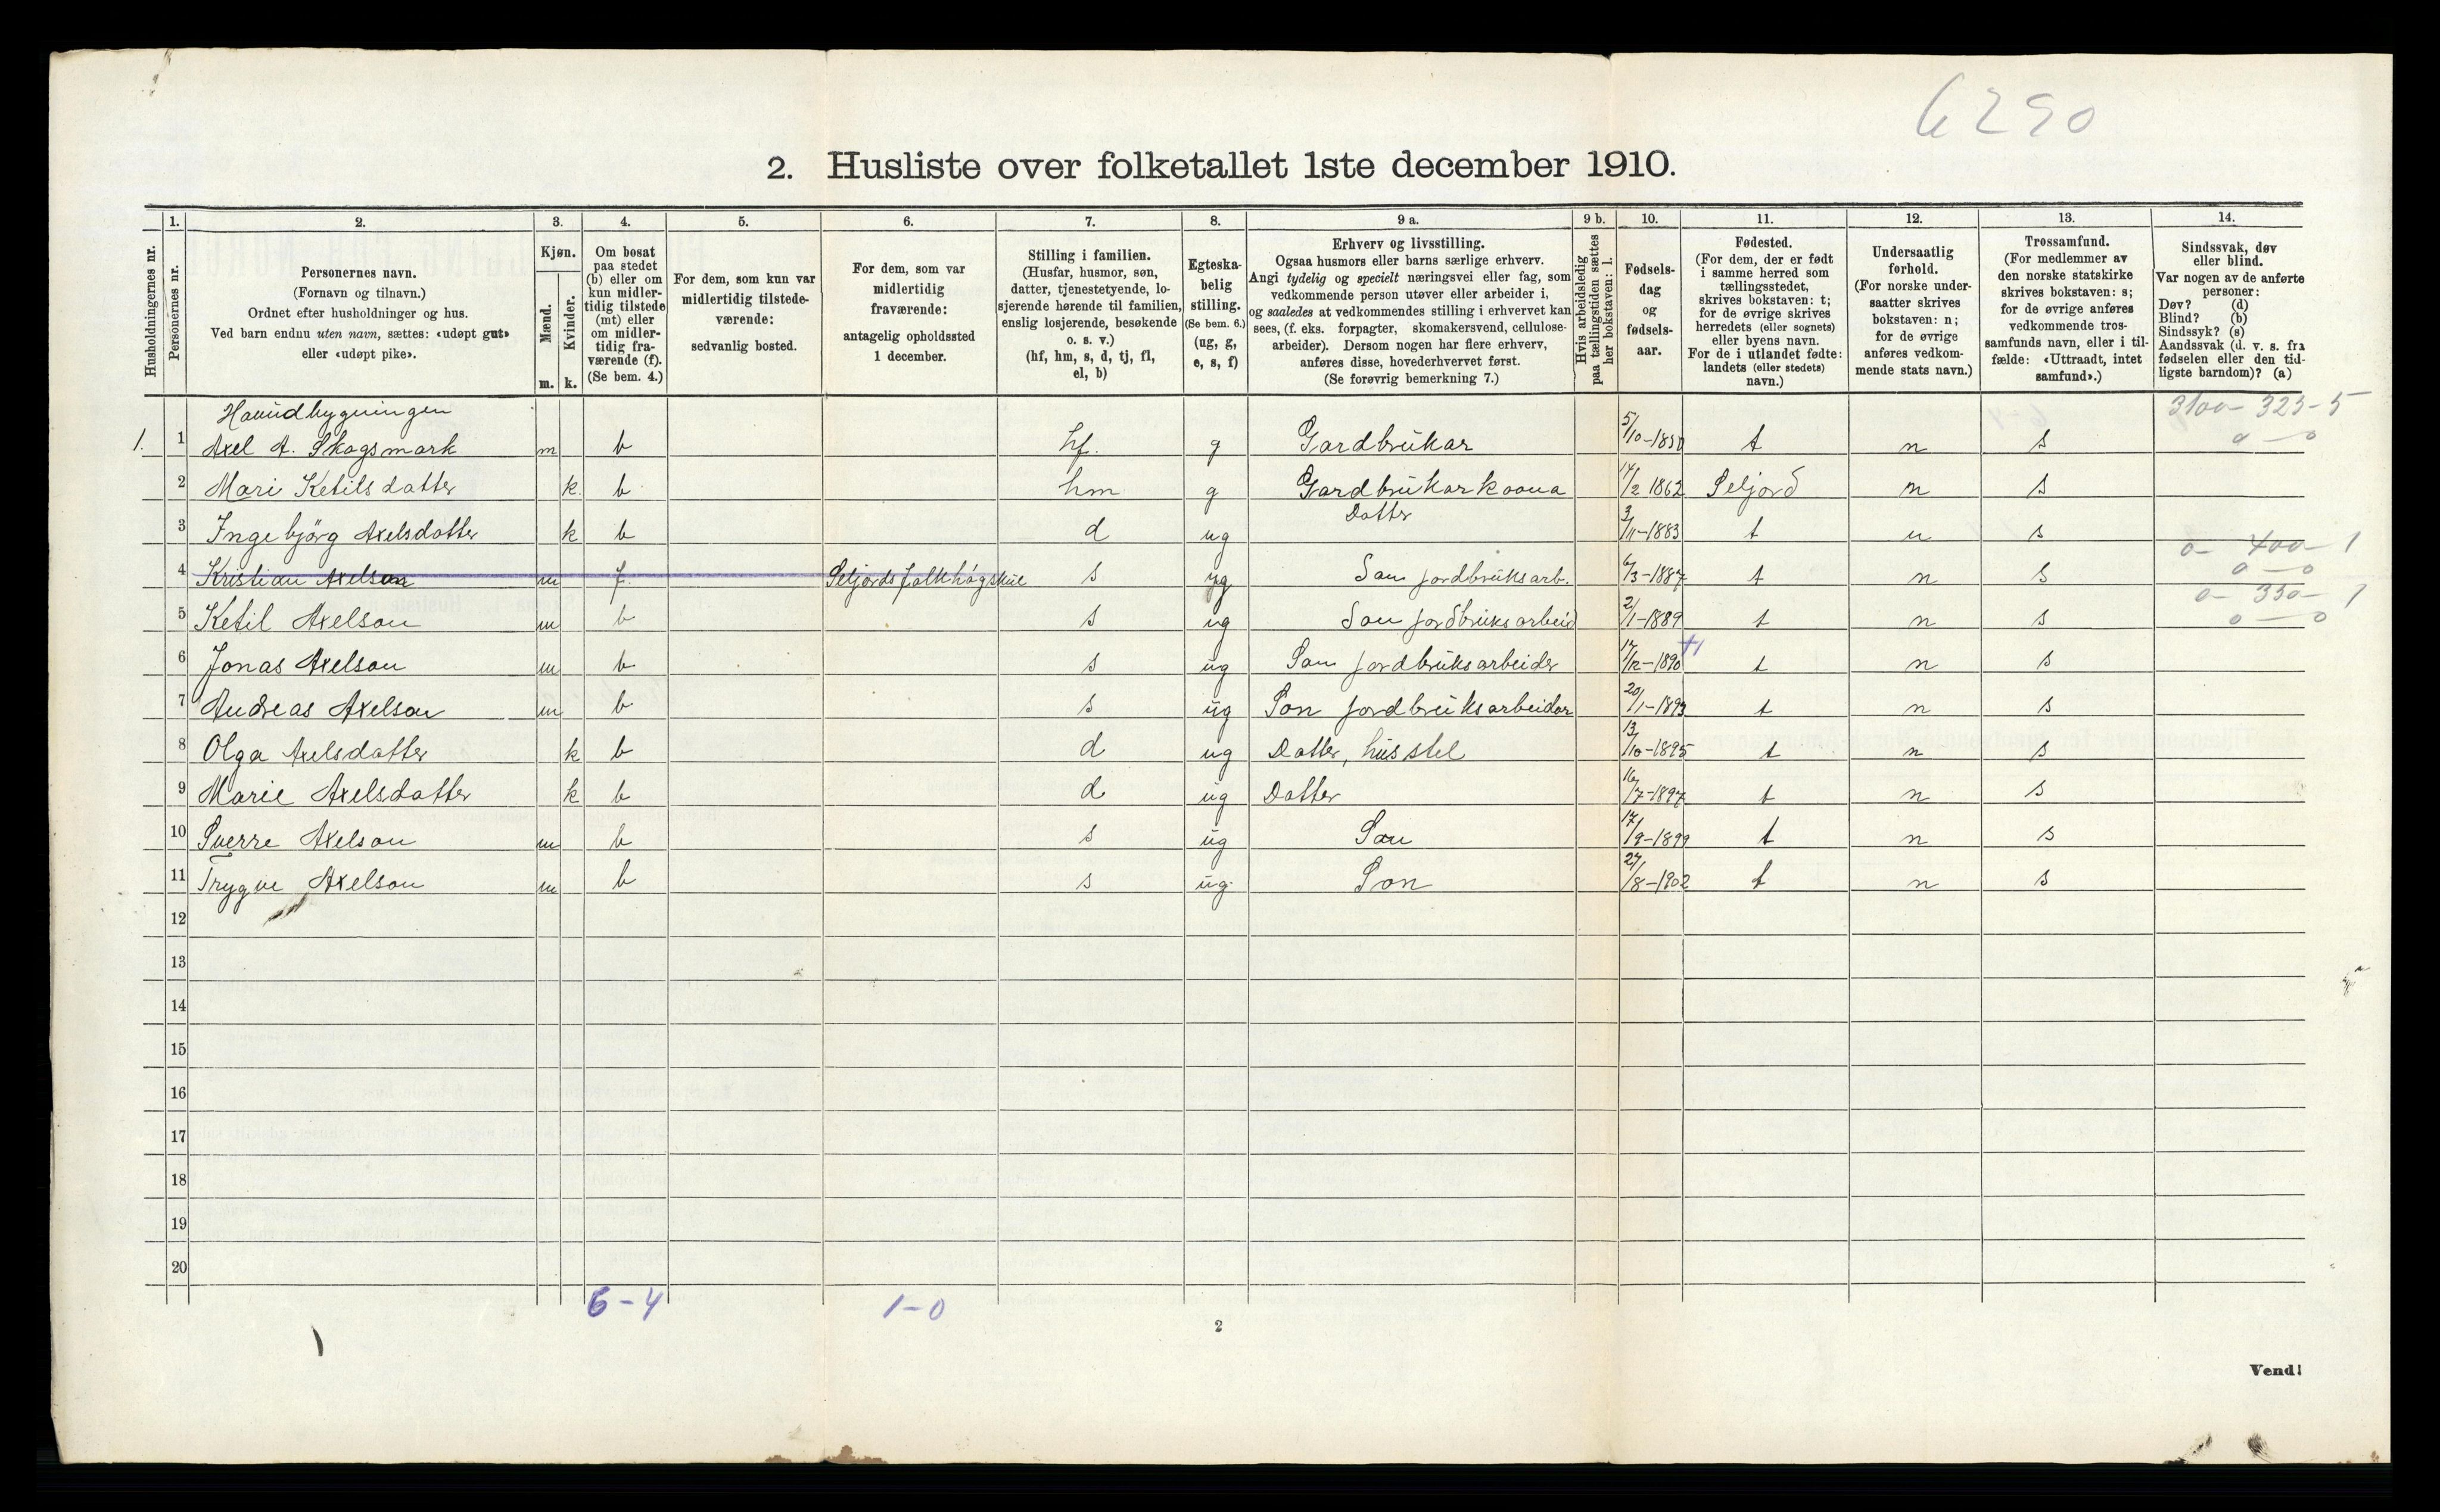 6290
2. Husliste over folketallet 1ste december 1910.
Husholdningernes nr.
1.
Personernes nr.
2.
Personernes navn.
(Fornavn og tilnavn.)
Ordnet efter husholdninger og hus.
Ved barn endnu uten navn, sættes: «udøpt gut»
eller «udøpt pike».
3.
Kjøn.
Mænd.
Kvinder.
m. k.
4.
Om bosat
paa stedet
(b) eller om
kun midler-
tidig tilstede
(mt) eller
om midler-
tidig fra-
værende (f).
(Se bem. 4.)
5.
For dem, som kun var
midlertidig tilstede-
værende:
sedvanlig bosted.
6.
For dem, som var
midlertidig
fraværende:
antagelig opholdssted
1 december.
7.
Stilling i familien.
(Husfar, husmor, søn,
datter, tjenestetyende, lo-
sjerende hørende til familien,
enslig losjerende, besøkende
o. s. v.)
(hf, hm, s, d, tj, fl,
el, b)
8.
Egteska-
belig
stilling.
(Se bem. 6.)
(ug, g,
e, s, f)
9 a.
Erhverv og livsstilling.
Ogsaa husmors eller barns særlige erhverv.
Angi tydelig og specielt næringsvei eller fag, som
vedkommende person utøver eller arbeider i,
og saaledes at vedkommendes stilling i erhvervet kan
sees, (f. eks. forpagter, skomakersvend, cellulose-
arbeider). Dersom nogen har flere erhverv,
anføres disse, hovederhvervet først.
(Se forøvrig bemerkning 7.)
9 b.
Hvis arbeidsledig
paa tællingstiden sættes
her bokstaven: l.
10.
Fødsels-
dag
og
fødsels-
aar.
11.
Fødested.
(For dem, der er født
i samme herred som
tællingsstedet,
skrives bokstaven: t;
for de øvrige skrives
herredets (eller sognets)
eller byens navn.
For de i utlandet fødte:
landets (eller stedets)
navn.)
12.
Undersaatlig
forhold.
(For norske under-
saatter skrives
bokstaven: n;
for de øvrige
anføres vedkom-
mende stats navn.)
13.
Trossamfund.
(For medlemmer av
den norske statskirke
skrives bokstaven: s;
for de øvrige anføres
vedkommende tros-
samfunds navn, eller i til-
fælde: «Uttraadt, intet
samfund».)
14.
Sindssvak, døv
eller blind.
Var nogen av de anførte
personer:
Døv? (d)
Blind? (b)
Sindssyk? (s)
Aandssvak (d. v. s. fra
fødselen eller den tid-
ligste barndom)? (a)
3100- 323-5
Havudbygningen
1. 1 Axel A. Skogsmark m b hf. g Gardbrukar 5/10-1850 t n s 0-0
2 Mari Ketilsdatter k. b hm g Gardbrukarkaana 14/2 1862 Seljord n s
Datter
3 Ingebjörg Axelsdatter k b d ug 3/11-1883 t n s
0- 400-1
4 Kristian Axelson m f. Seljords folkhøgskule s ug Son jordbruksarb. 6/3-1887 t n s 0-0
0- 330-1
5 Ketil Axelson m b s ug Son jordbruksarbeid 2/1-1889 t n s 0-0
6 Jonas Axelson m b s ug Son jordbruksarbeider 17/12-1890 t n s
7 Andreas Axelson m b s ug Son jordbruksarbeidar 20/1-1893 t n s
8 Olga Axelsdatter k b d ug Datter, husstel 13/10-1895 t n s
9 Marie Axelsdatter k b d ug Datter 16/7-1897 t n s
10 Sverre Axelson m b s ug Son 17/9-1899 t n s
11 Trygve Axelson m b s ug. Son 27/8-1902 t n s
12
13
14
15
16
17
18
19
20
6-4 1-0
2
Vend!